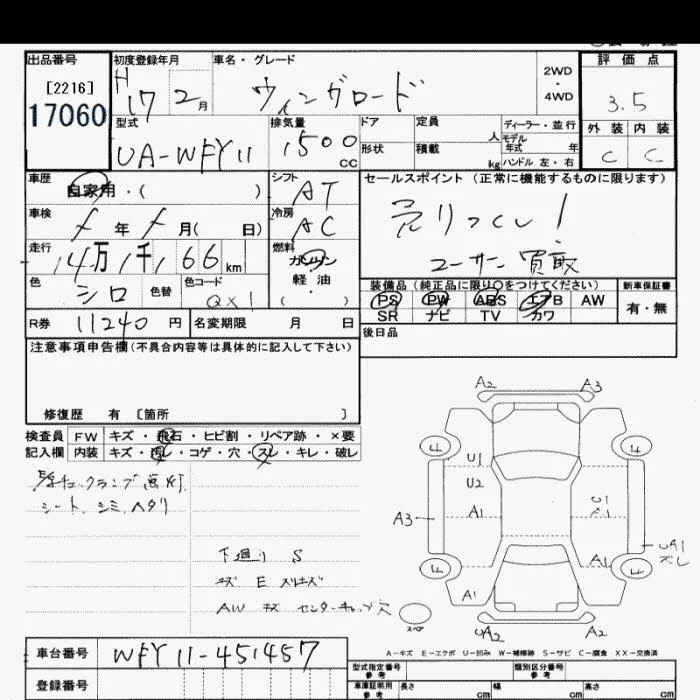 出品番号 初度登録年月 車名・グレード 評価点
[2216] 2WD
17060 H 17 2月 ウィングロード ・ 3.5
4WD
型式 排気量 ドア 定員 ディーラー・並行 外装 内装
UA-WFY11 1500 CC 形状 積載 人 モデル年式 年 C C
kg ハンドル 左・右
車歴 シフト セールスポイント (正常に機能するものに限ります)
自家用・( ) AT
車検 年 月( 日) 冷房 AC 売りつくし!
走行 14万1千166km 燃料 ガソリン ユーザー買取
色 シロ 色替 色コード QX1 軽・油 装備品(純正品に限り○をつけてください) 新車保証書
( ) PS PW ABS エアB AW 有・無
R券 11240円 名変期限 月 日 SR ナビ TV カワ
注意事項申告欄(不具合内容等は具体的に記入して下さい) 後日品
修復歴 有 [箇所 ]
検査員 FW キズ・飛石・ヒビ割・リペア跡・×要
記入欄 内装 キズ・汚レ・コゲ・穴・スレ・キレ・破レ
シート、シミ、ヘタリ
下廻り S
キズ E スリキズ
AW キズ センターキャップ穴
A2 A3
U1
U2 U1
A3 A1 UA1
スレ
A1
A1
スペ UA2 A2
A-キズ E-エクボ U-凹み W-補修跡 S-サビ C-腐食 XX-交換済
車台番号 WFY11-451457 型式指定番号 参考 類別区分番号 参考
登録番号 車庫証明用 参考 長さ cm 幅 cm 高さ cm